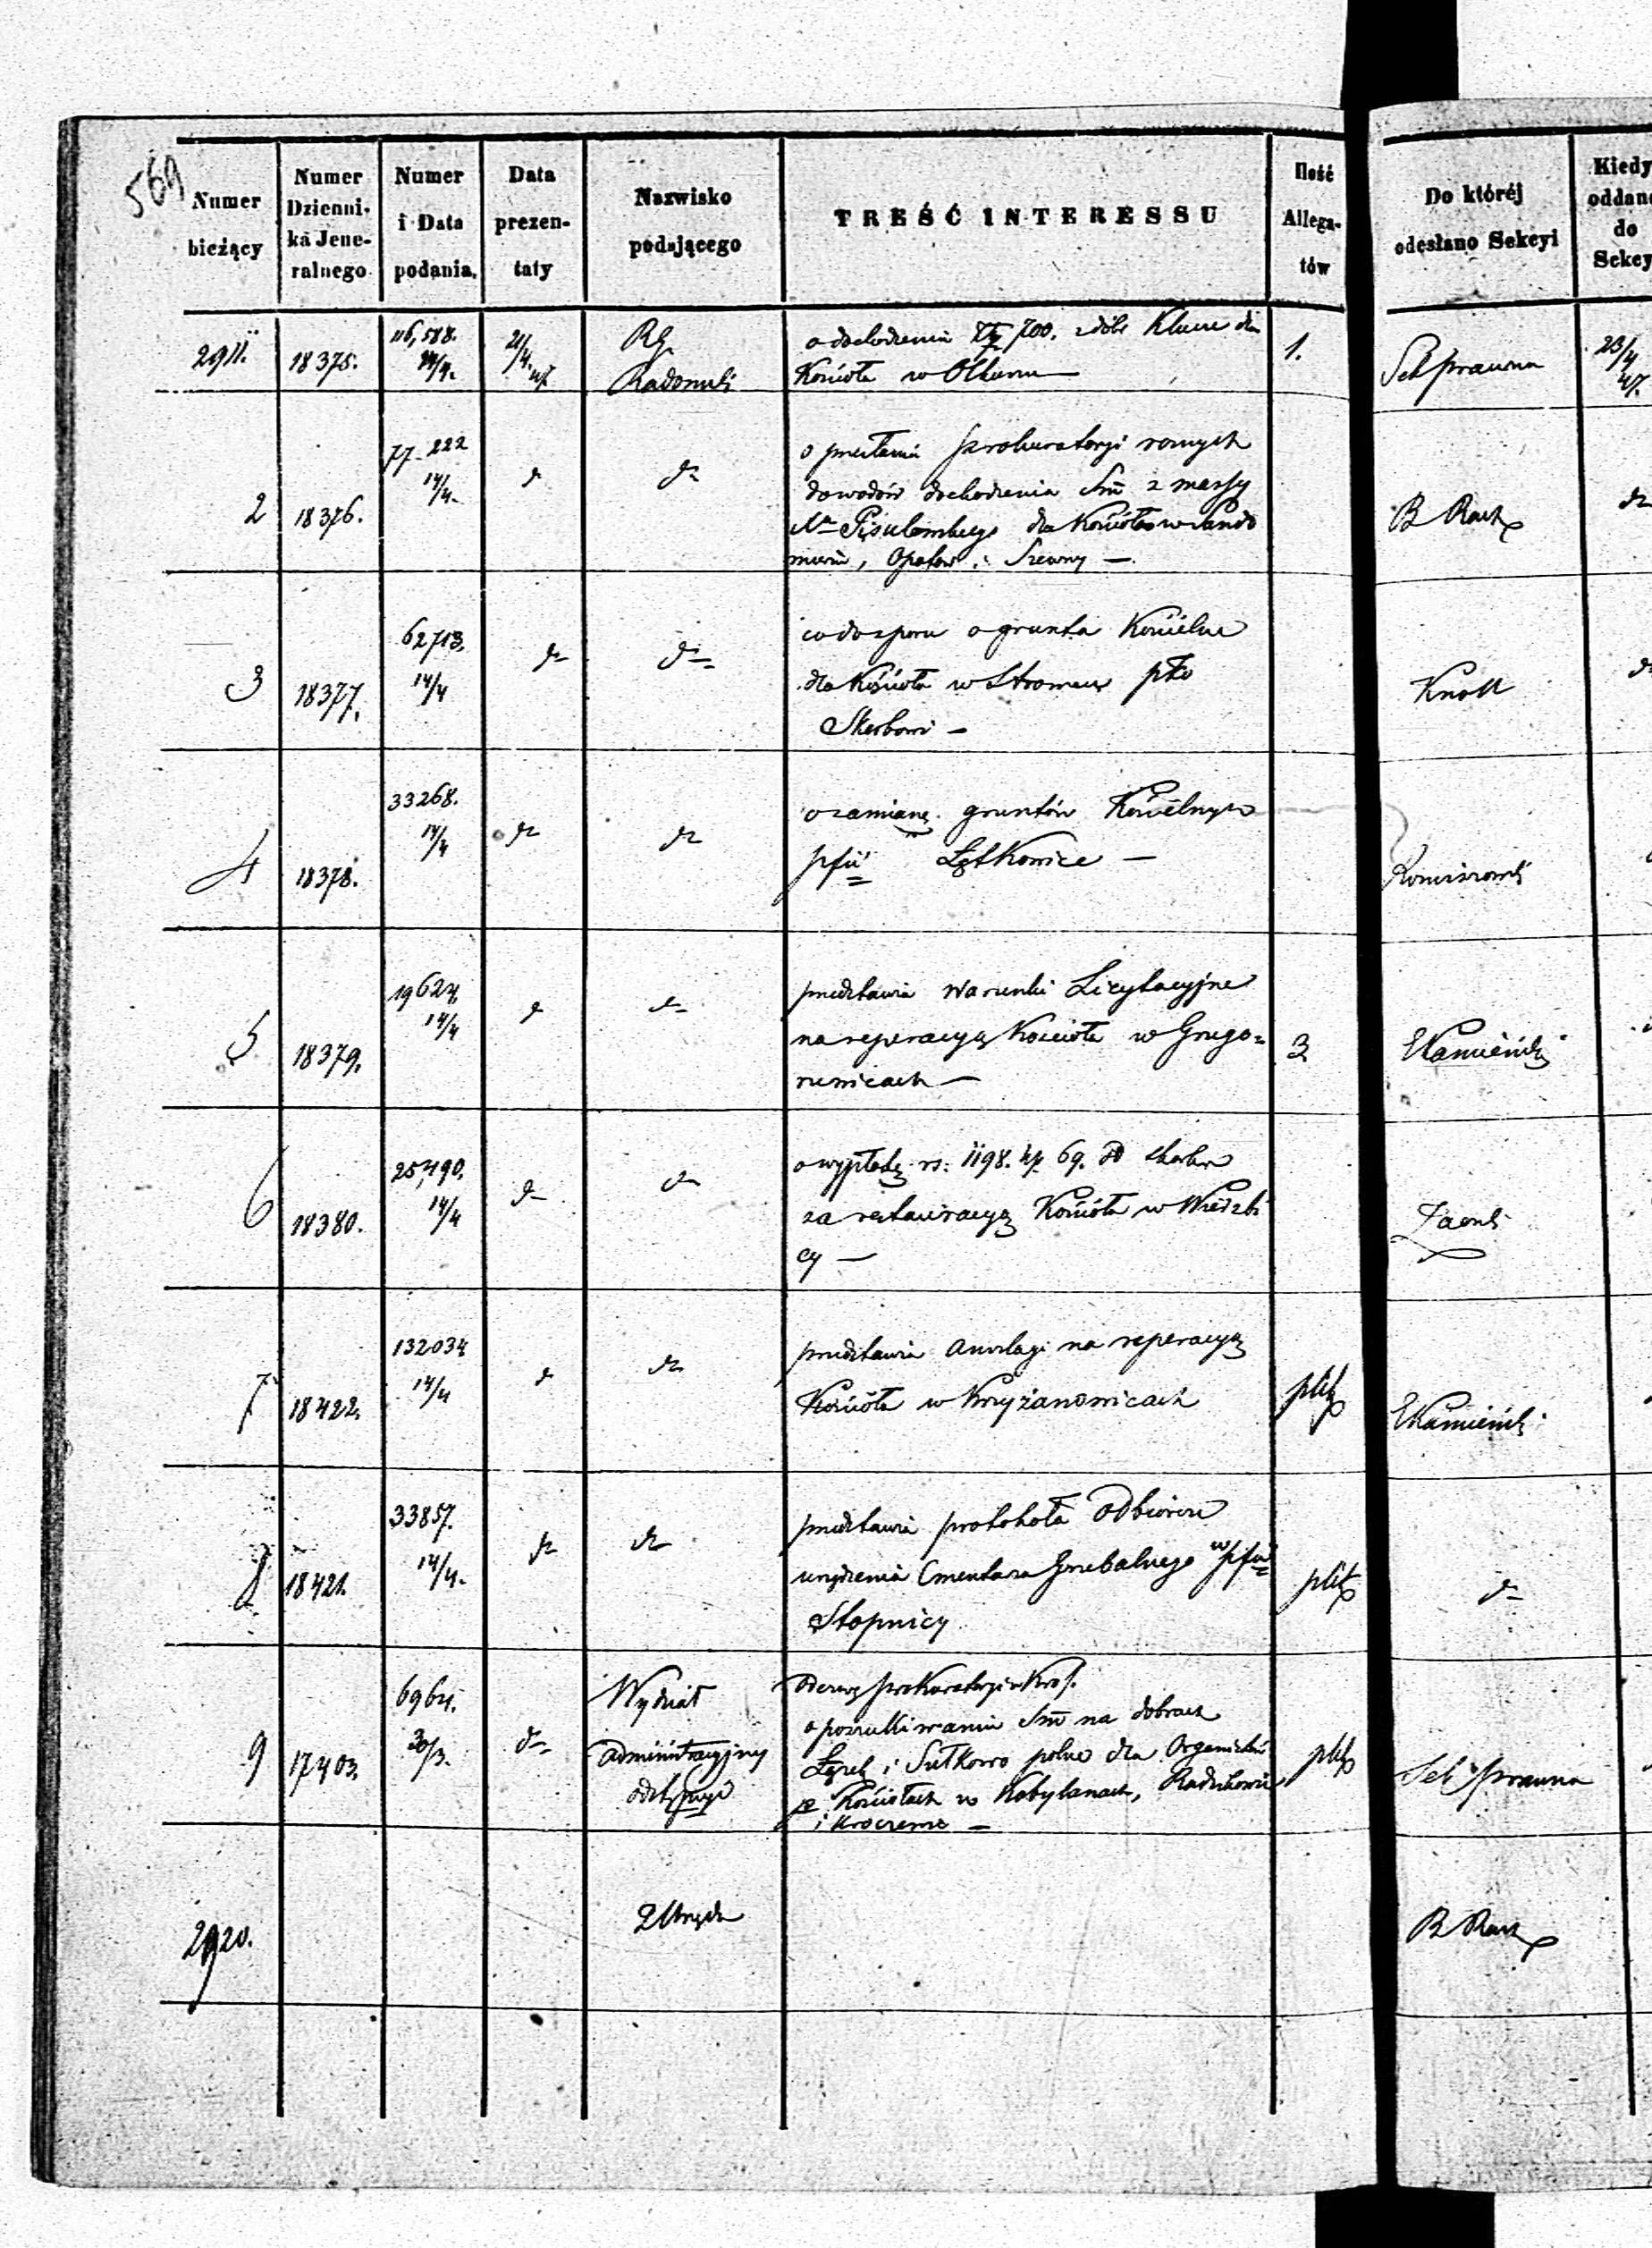 569
Numer bieżący
Numer Dziennika Jeneralnego
Numer i Data podania.
Data prezentaty
Nazwisko podającego
TREŚĆ INTERESSU
Ilość Allegatów
Do któréj odesłano Sekcyi
Kiedy oddan do Sekcy
2911. 18375. 116,588. 14/4. 21/4. 47 RG. Radomski
o dochodzenia 700. z dóbr Klucze dla
Kościoła w Olkuszu —
1. Sek prawna 23/4 47.
2 18376. 77-222 14/4. d° d°
o przesłanie prokuratoryi nowych
dowodów dochodzenia Sm̄ z massy
dla Kościołów w Sando
mierzu, Opatow. i Szewny —
B Rach d°
3 18377. 62713. 14/4 d° d°
co do sporu o grunta Kościelne
dla Kościoła w Stromcu pko
Skarbowi —
Knoll d°
4 18378. 33268. 14/4 d° d°
o zamianę gruntów Kościelnych
pfii Łętkowice —
5 18379. 19624. 14/4 d° d°
przedstawia warunki Licytacyjne
na reperacyą Kościoła w Grzego=
rzewicach —
3 EKamieński
6 18380. 25,490. 14/4 d° d°
o wypłatę rs: 1198. kp 69. od skarbu
za restauracyą Kościoła w Wierzbi
cy —
7 18422. 132034 14/4 d° d°
przedstawia anszlagi na reperacyą
Kościoła w Krzyżanowicach
plik EKamieński
8 18421. 33857. 14/4. d° d°
przedstawia protokoła odbiorcze
urządzenia Cmentarza Grzebalnego w pfii
Stopnicy
plik d°
9 17403. 6964. 30/3. d° Wydział administracyjny
odezwę prokuratoryi w Król.
o poszukiwaniu Sm̄ na dobrach
i polne dla Organistów
pe Kościołach w Kobylanach,
i
plik Sek prawna
2920. Z Urzędu B Rach